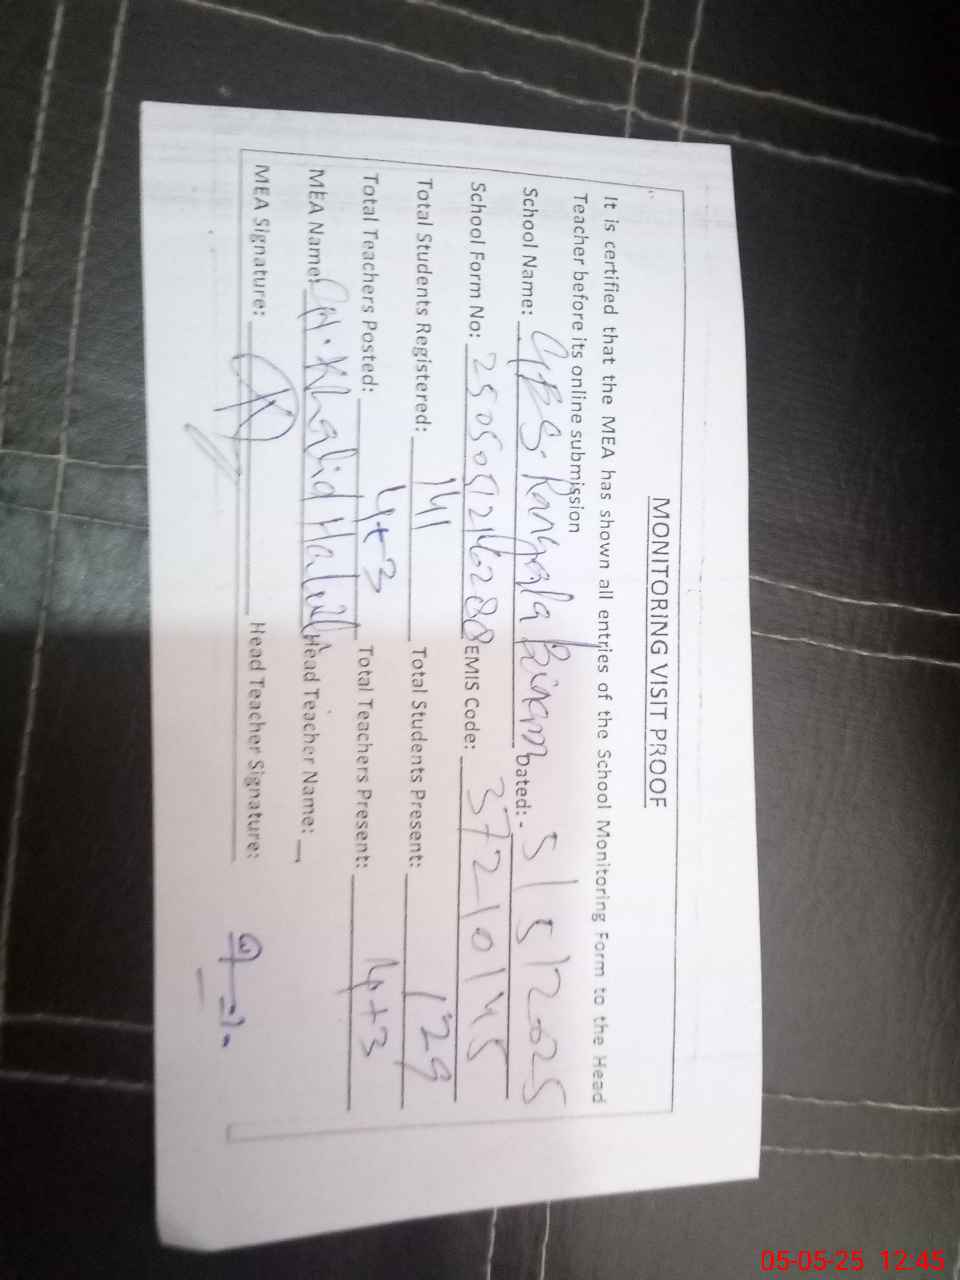 MONITORING VISIT PROOF
It is certified that the MEA has shown all entries of the School Monitoring Form to the Head
Teacher before its online submission
School Name: GBS. Rangala Dated:- 5/5/2025
School Form No: EMIS Code: 37210145
Total Students Registered: 141 Total Students Present: 129
Total Teachers Posted: 4+3 Total Teachers Present: 4+3
MEA Name: Khalid Head Teacher Name:
MEA Signature: Head Teacher Signature:
05-05-25 12:45